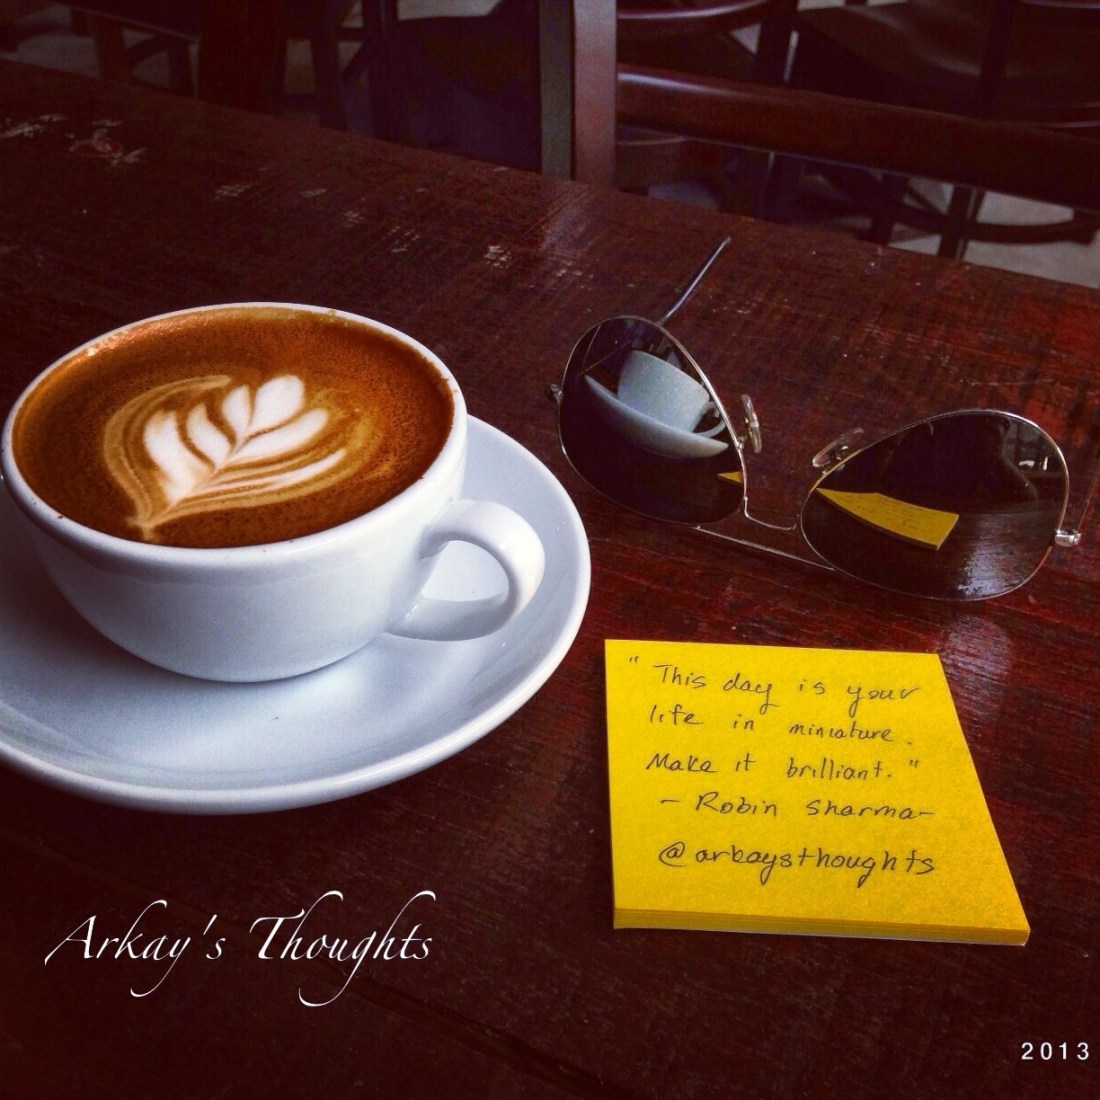 " This day is your
life in miniature.
Make it brilliant. "
- Robin Sharma-
@arkaysthoughts
Arkay's Thoughts
2013